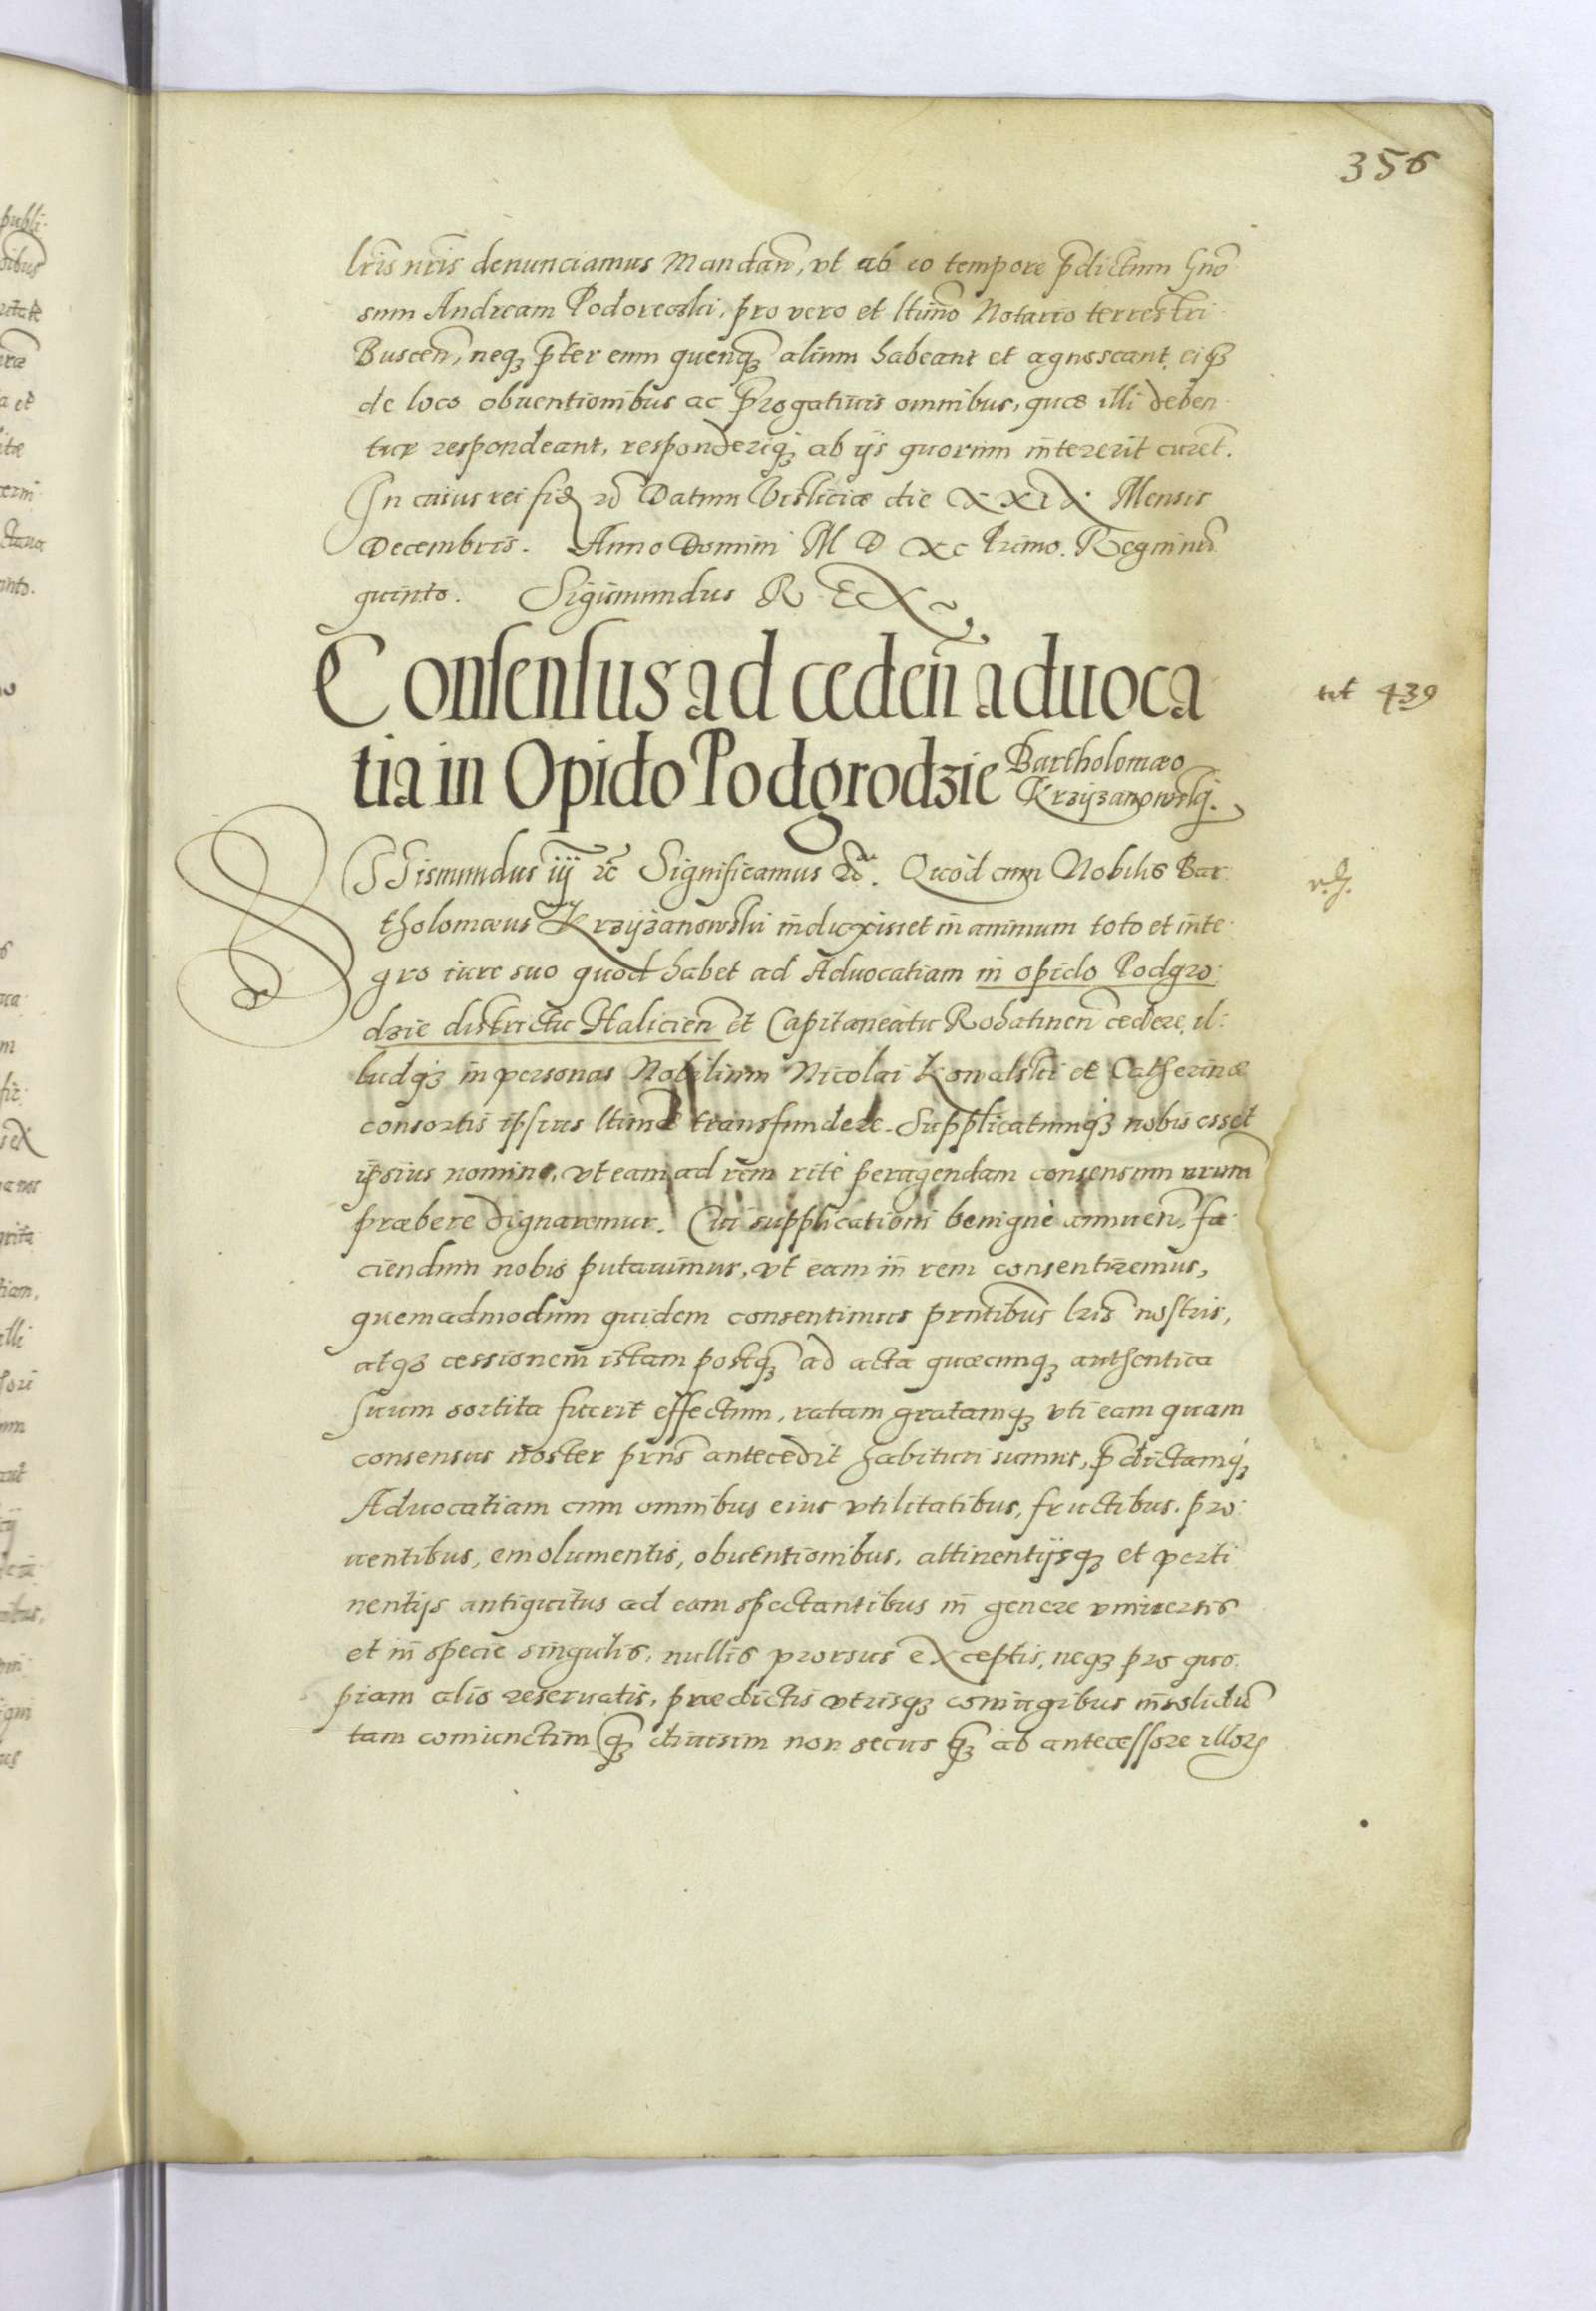 356
lr̃is nr̃is denunciamus Mandan̄, vt ab eo tempore p̄dictum Gn̄o
sum Andream Podoreoski, pro vero et ltimo Notario terrestri
Buscen̄, neqꝫ p̄ter eum quenqꝫ alium habeant et agnoscant, eiqꝫ
de loco obuentionibus ac p̄rogatiuis omnibus, quæ illi deben
tur respondeant, responderiqꝫ ab ijs quorum intererit curet.
In cuius rei fid Datum Visliciæ die XXIX Mensis
Decembris. Anno Domini M D XC Primo. Regni nr̄i
quinto. Sigismundus REX
Consensus ad ceden̄ aduoca
tia in Opido Podgrodzie Bartholomæo
Krzyzanowskj.
tit 439
Sigismundus iij ꝛc Significamus ꝛc. Quod cum Nobilis Bar
tholomæus Krzyzanowski induxisset in animum toto et inte
gro iure suo quod habet ad Aduocatiam in opido Podgro
dzie districtu Halicien̄ et Capitaneatu Rohatinen̄ cedere, il
ludqꝫ in personas Nobilium Nicolai Kowalski et Catherinæ
consortis ipsius ltimæ transfundere. Supplicatumqꝫ nobis esset
ipsius nomine, vt eam ad rem ritè peragendam consensum nr̄um
præbere dignaremur. Cui supplicationi benignè annuen̄, fa
ciendum nobis putauimus, vt eam in rem consentiremus,
quemadmodum quidem consentimus prn̄tibus lr̄is nostris,
atqꝫ cessionem istam postqꝫ ad acta quæcunqꝫ authentica
suum sortita fuerit effectum, ratam gratamqꝫ vti eam quam
consensus noster prn̄s antecedit habituri sumus, p̄dictamqꝫ
Aduocatiam cum omnibus eius vtilitatibus, fructibus, pro
uentibus, emolumentis, obuentionibus, attinentijsqꝫ et perti
nentijs antiquitus ad eam spectantibus in genere vniuersis
et in specie singulis, nullis prorsus exceptis, neqꝫ pro quo
piam alio reseruatis, prædictis vtrisqꝫ coniugibus insolidū
tam coniunctim qꝫ diuisim non secus qꝫ ab antecessore illoꝝ